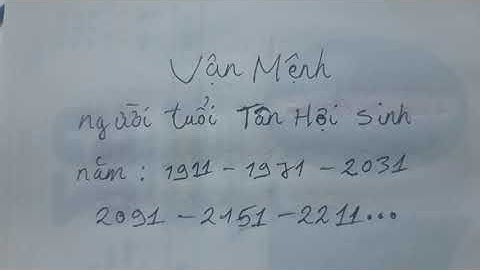 Vận Mệnh
người tuổi Tân Hội sinh
năm : 1911 - 1971 - 2031
2091 - 2151 - 2211...